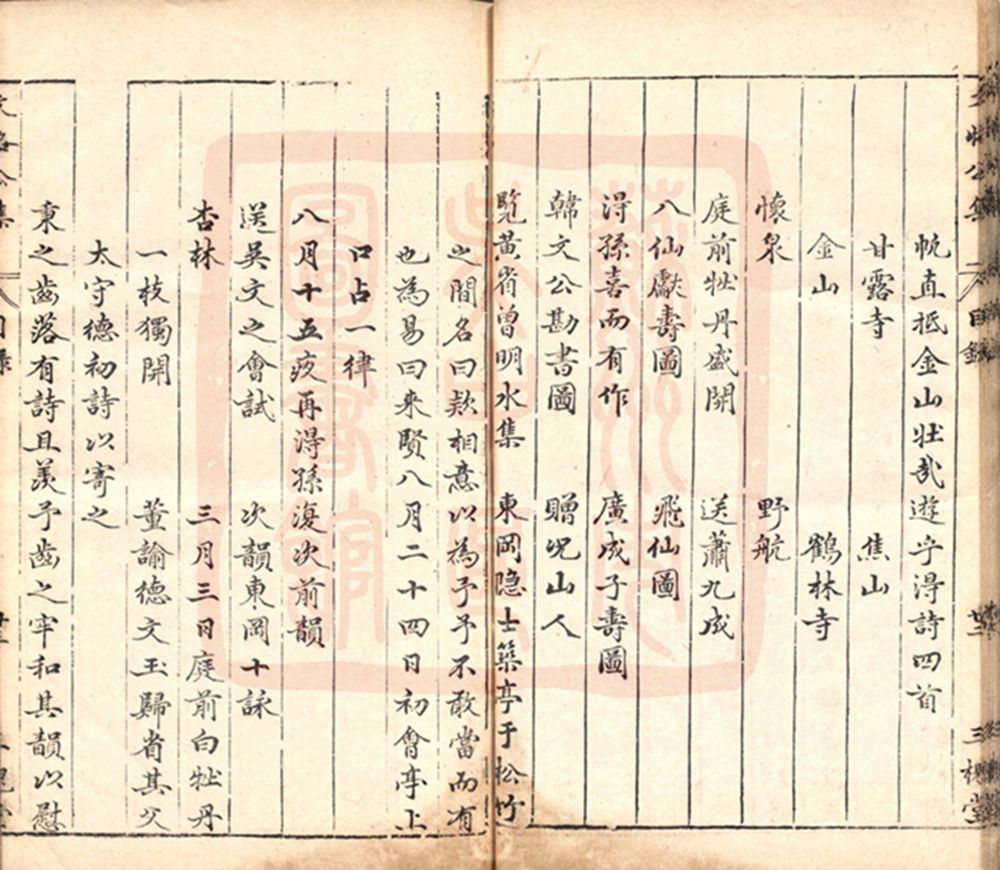 帆直抵金山壯哉遊乎得詩四首
甘露寺 焦山
金山 鶴林寺
懷泉 野航
庭前牡丹盛開 送蕭九成
八仙獻壽圖 飛仙圖
得孫喜而有作 廣成子壽圖
韓文公勘書圖 贈况山人
覽黃省曾明水集 東岡隐士築亭于松竹
之間名曰欵相意以為予予不敢當而有
也為易曰来賢八月二十四日初會亭上
口占一律
八月十五夜再得孫復次前韻
送吳文之會試 次韻東岡十詠
杏林 三月三日庭前白牡丹
一枝獨開 董諭德文玉歸省其父
太守德初詩以寄之
秉之齒落有詩且羨予齒之牢和其韻以慰